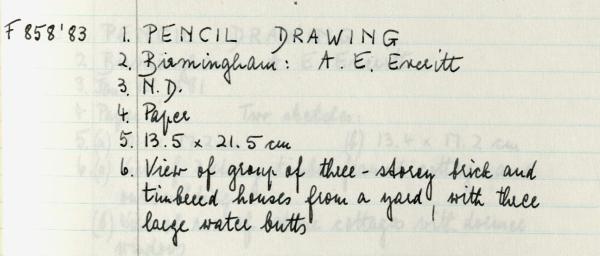 F 858'83 1. PENCIL DRAWING
2. Birmingham: A. E. Everitt
3. N.D.
4. Paper
5. 13.5 x 21.5 cm
6. View of group of three-storey brick and
timbered houses from a yard, with three
large water butts